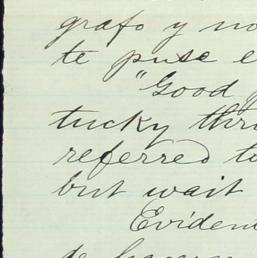 grafo y no
te puse e
"Good
tucky thro
referred to
but wait
Eviden
de haceru